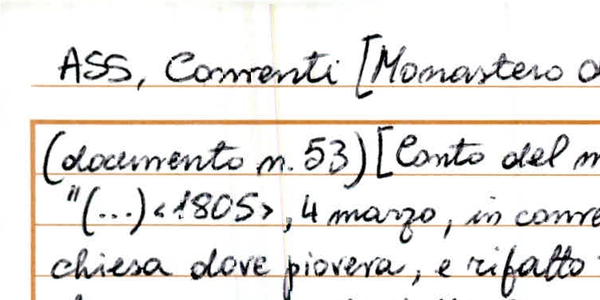 ASS, Conventi [Monastero d
(documento n. 53) [Conto del m
"(...) <1805>, 4 marzo, in conve
chiesa dove pioveva, e rifatto